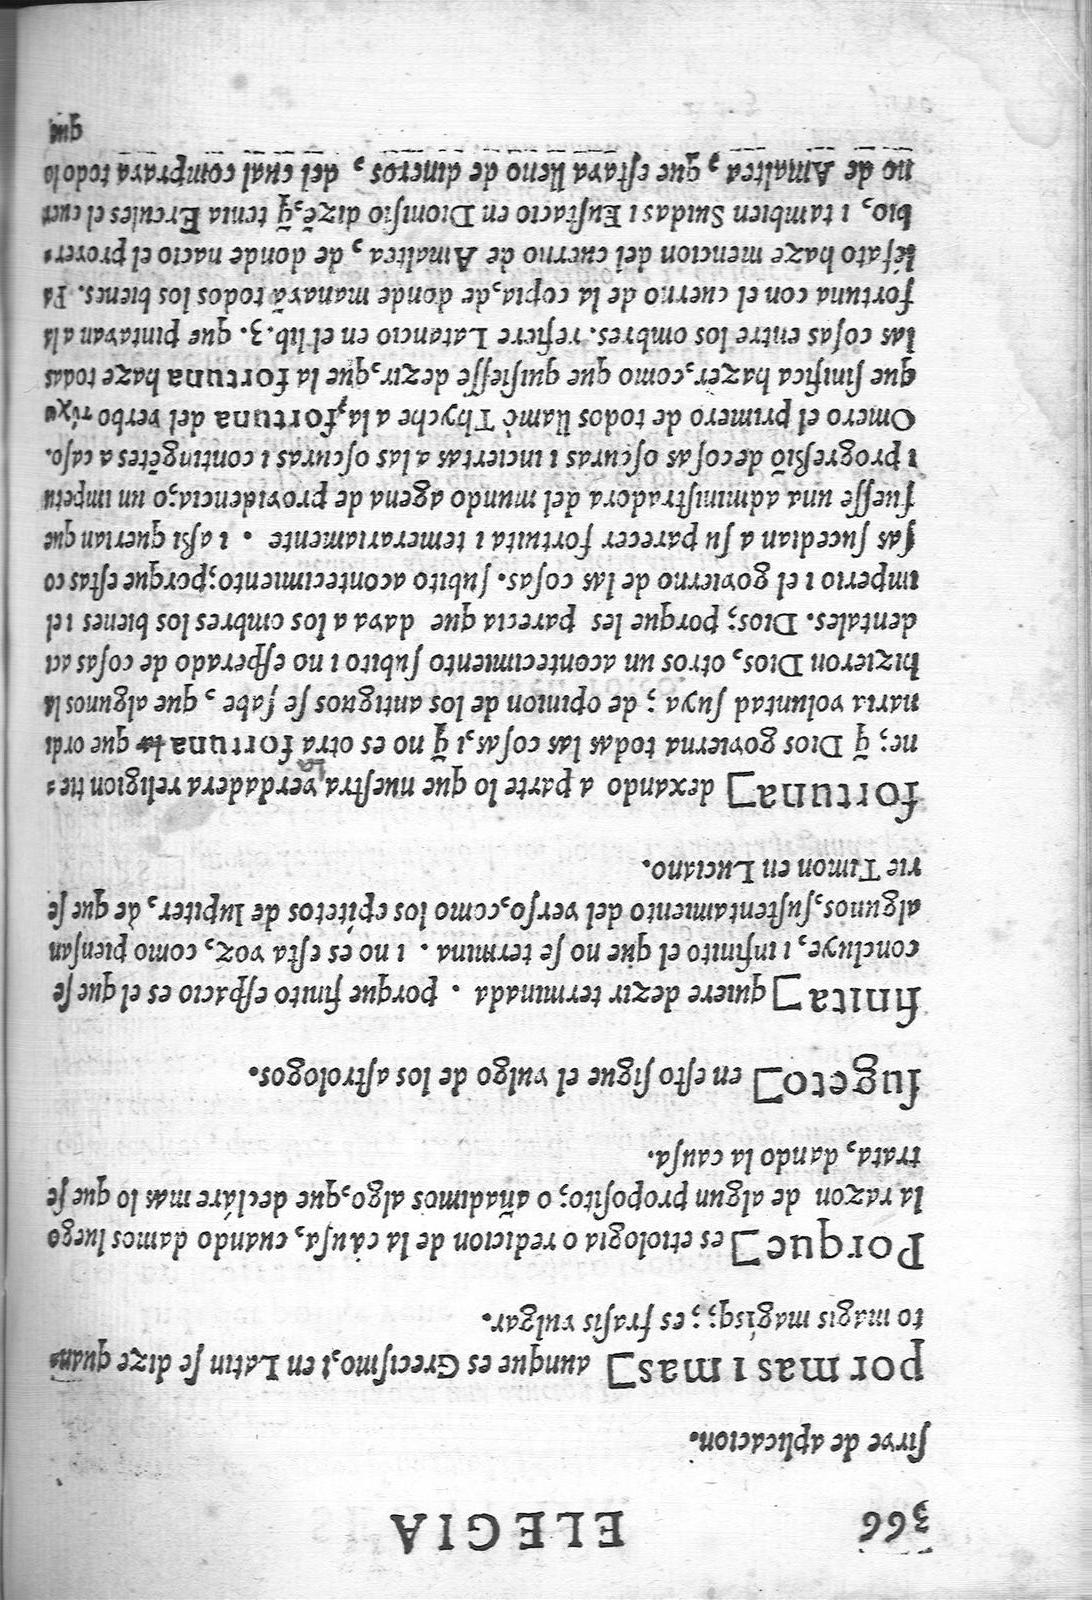 366 ELEGIA
ſirve de aplicacion.
por mas i mas] aunque es Grecismo, i en Latin ſe dize quan=
to magis magisq;; es fraſis vulgar.
Porque] es etiologia o redicion de la cáuſa, cuando damos luego
la razon de algun propoſito; o añadimos algo, que decláre mas lo que ſe
trata, dando la cauſa.
ſugeto] en eſto ſigue el vulgo de los aſtrologos.
finita] quiere dezir terminada . porque finito eſpacio es el que ſe
concluye, i infinito el que no ſe termina . i no es eſta voz, como pienſan
algunos, ſuſtentamiento del verſo, como los epítetos de Iupiter, de que ſe
rie Timon en Luciano.
fortuna] dexando a parte lo que nueſtra verdadera religion tie=
ne; q̃ Dios govierna todas las coſas, i q̃ no es otra fortuna la que ordi
naria voluntad ſuya ; de opinion de los antiguos ſe ſabe , que algunos la
hizieron Dios, otros un acontecimiento ſubito i no eſperado de coſas aci
dentales. Dios; porque les parecia que dava a los ombres los bienes i el
imperio i el govierno de las coſas. ſubito acontecimiento; porque eſtas co
ſas ſucedian a ſu parecer fortuita i temerariamente . i aßi querian que
fueſſe una adminiſtradora del mundo agena de providencia; o un impetu
i progreßiõ de coſas oſcuras i inciertas a las oſcuras i contingẽtes a caſo.
Omero el primero de todos llamó Thyche a la fortuna del verbo τύχω
que ſinifica hazer, como que quiſieſſe dezir, que la fortuna haze todas
las coſas entre los ombres. refiere Latancio en el lib. 3. que pintavan a la
fortuna con el cuerno de la copia, de donde manavã todos los bienes. Pa
léfato haze mencion del cuerno de Amaltea , de donde nacio el prover=
bio, i tambien Suidas i Euſtacio en Dioniſio dizẽ, q̃ tenia Ercules el cuer
no de Amaltea , que eſtava lleno de dineros , del cual comprava todo lo
que